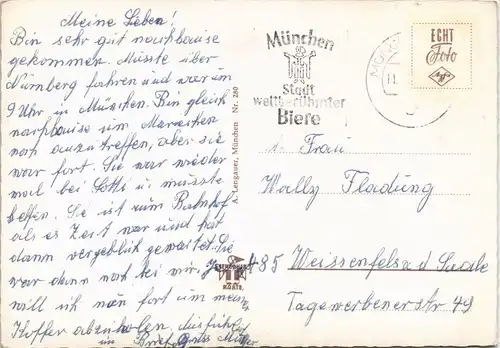 Meine Leben!
Bin sehr gut nachhause
gekommen. Müsste über
Nürnberg fahren und war um
9 Uhr in München. Bin gleich
nachhause um Mariechen
noch anzutreffen, aber sie
war fort. Sie war wieder
mal bei Lotti u. musste
helfen. Sie ist zum Bahnhof
als es Zeit war und hat
dann vergeblich gewartet. Sie
war dann noch bei mir. Jetzt
will ich noch fort um meinen
Koffer abzuholen. Ausführl.
im Brief. Gruss Mutter
A. Lengauer, München Nr. 280
München
Stadt
weltberühmter
Biere
ECHT
Foto
Agfa
a. Frau
Wally Fladung
485 Weissenfels a. d. Saale
Tagewerbenerstr 49